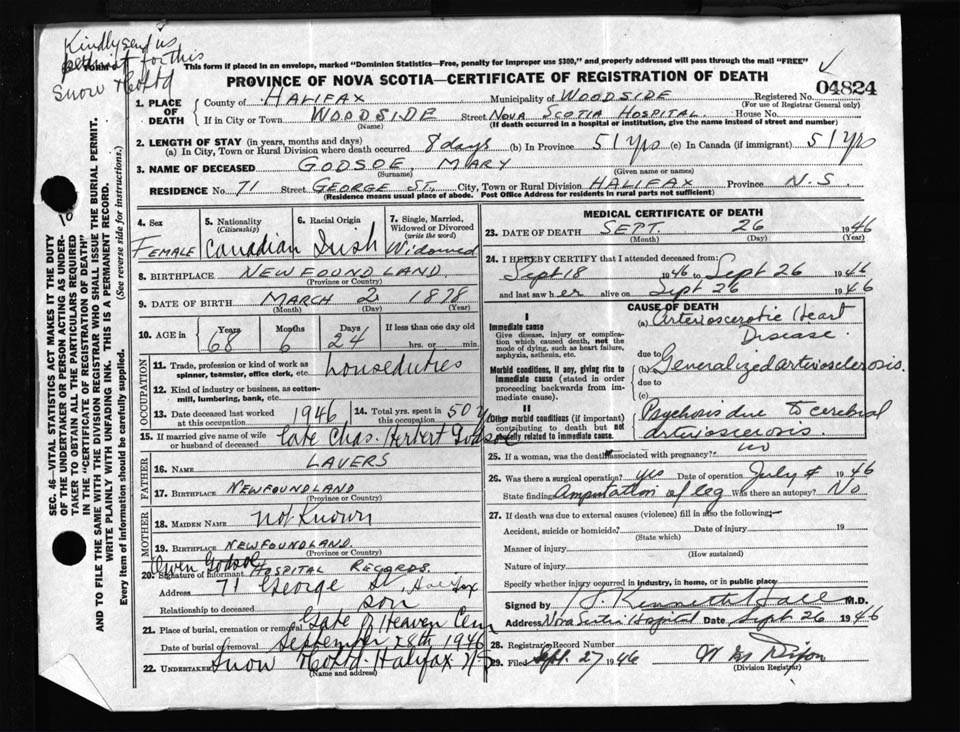 Kindly send us
permit for this
Snow Co Ltd
FORM
This form if placed in an envelope, marked "Dominion Statistics—Free, penalty for improper use $300," and properly addressed will pass through the mail "FREE"
04824
PROVINCE OF NOVA SCOTIA—CERTIFICATE OF REGISTRATION OF DEATH
1. PLACE OF DEATH County of HALIFAX Municipality of WOODSIDE Registered No.
(For use of Registrar General only)
If in City or Town WOODSIDE Street NOVA SCOTIA HOSPITAL House No.
(Name) (If death occurred in a hospital or institution, give the name instead of street and number)
2. LENGTH OF STAY (in years, months and days)
(a) In City, Town or Rural Division where death occurred 8 days (b) In Province 51 yrs (c) In Canada (if immigrant) 51 yrs
3. NAME OF DECEASED GODSOE, MARY
(Surname) (Given name or names)
RESIDENCE No. 71 Street GEORGE ST., City, Town or Rural Division HALIFAX Province N.S.
(Residence means usual place of abode. Post Office Address for residents in rural parts not sufficient)
4. Sex FEMALE
5. Nationality (Citizenship) Canadian
6. Racial Origin Irish
7. Single, Married, Widowed or Divorced (write the word) Widowed
8. BIRTHPLACE NEWFOUNDLAND
(Province or Country)
9. DATE OF BIRTH MARCH 2 1878
(Month) (Day) (Year)
10. AGE in Years 68 Months 6 Days 24 If less than one day old
hrs. or min.
OCCUPATION
11. Trade, profession or kind of work as spinner, teamster, office clerk, etc. houseduties
12. Kind of industry or business, as cotton-mill, lumbering, bank, etc.
13. Date deceased last worked at this occupation 1946
14. Total yrs. spent in this occupation 50 yrs
15. If married give name of wife or husband of deceased Late Chas. Herbert Godsoe
FATHER
16. Name LAVERS
17. Birthplace NEWFOUNDLAND
(Province or Country)
MOTHER
18. Maiden Name Not Known
19. Birthplace NEWFOUNDLAND.
(Province or Country)
Owen Godsoe
20. Signature of informant HOSPITAL RECORDS.
Address 71 George St, Halifax
Relationship to deceased son
21. Place of burial, cremation or removal Gate of Heaven Cem
Date of burial or removal September 28th 1946
22. Undertaker Snow Co Ltd. Halifax N S
(Name and address)
MEDICAL CERTIFICATE OF DEATH
23. DATE OF DEATH SEPT. 26 1946
(Month) (Day) (Year)
24. I HEREBY CERTIFY that I attended deceased from:
Sept 18 1946 to Sept 26 1946
and last saw her alive on Sept 26 1946
CAUSE OF DEATH
I
Immediate cause
Give disease, injury or complication which caused death, not the mode of dying, such as heart failure, asphyxia, asthenia, etc.
(a) Arterioscerotic Heart
Disease
Morbid conditions, if any, giving rise to immediate cause (stated in order proceeding backwards from immediate cause).
due to
(b) Generalized arteriosclerosis.
due to
(c)
II
Other morbid conditions (if important) contributing to death but not causally related to immediate cause.
Psychosis due to cerebral
arterioscerosis.
25. If a woman, was the death associated with pregnancy? no
26. Was there a surgical operation? yes Date of operation July 4 1946
State finding Amputation of leg Was there an autopsy? No
27. If death was due to external causes (violence) fill in also the following:—
Accident, suicide or homicide? Date of injury 19
(State which)
Manner of injury
(How sustained)
Nature of injury
Specify whether injury occurred in industry, in home, or in public place
Signed by J. Kenneth Hall M.D.
Address Nova Scotia Hospital Date Sept 26 1946
28. Registrar's Record Number
29. Filed Sept. 27 1946 Dixon
(Division Registrar)
SEC. 46—VITAL STATISTICS ACT MAKES IT THE DUTY
OF THE UNDERTAKER OR PERSON ACTING AS UNDER-
TAKER TO OBTAIN ALL THE PARTICULARS REQUIRED
IN THE "CERTIFICATE OF REGISTRATION OF DEATH"
AND TO FILE THE SAME WITH THE DIVISION REGISTRAR WHO SHALL ISSUE THE BURIAL PERMIT.
WRITE PLAINLY WITH UNFADING INK. THIS IS A PERMANENT RECORD.
Every item of information should be carefully supplied. (See reverse side for instructions.)